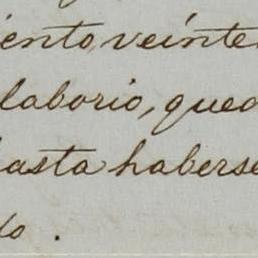 iento veinte
laborio, que
hasta haberse
do.